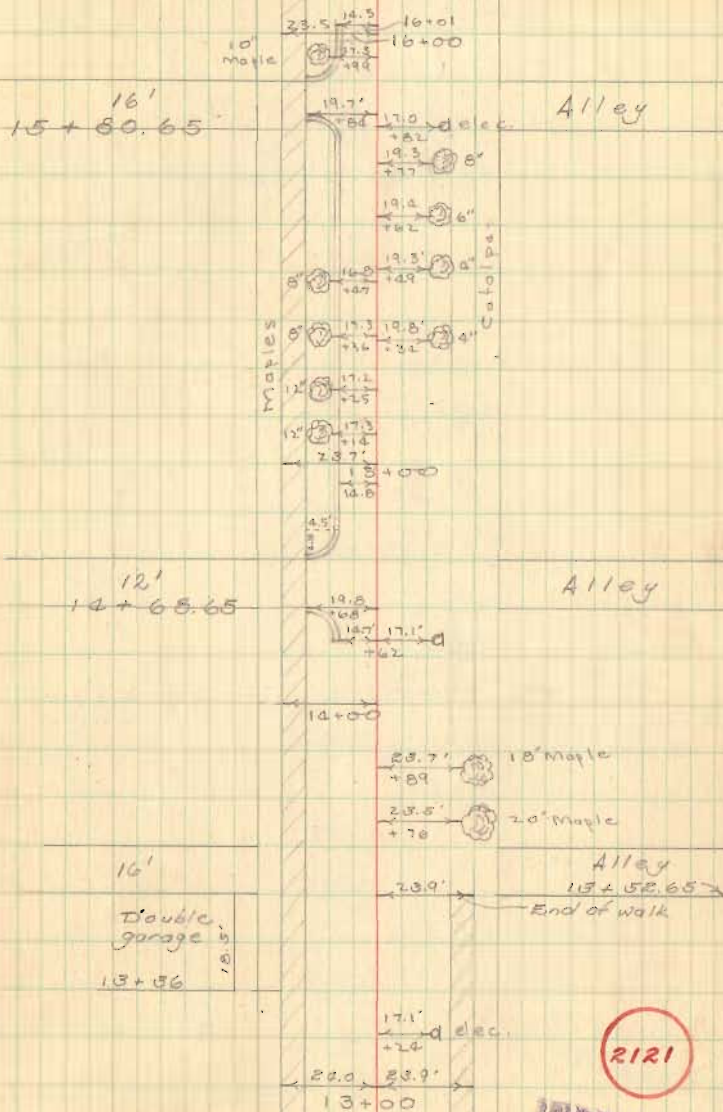 23.5
14.3
16+01
16+00
10"
Maple
17.3
+99
16'
15 + 80.65
19.7'
+84
17.0
+82
elec.
Alley
19.3
+77
8"
19.4
+62
6"
Catalpa
8"
16.8
+47
19.3'
+49
Maples
8"
17.3
+36
19.8'
+34
4"
12"
17.2
+25
12"
17.3
+14
23.7'
+00
14.8
4.5'
12'
14 + 68.65
Alley
19.8
+68
14.7'
17.1'
+62
14+00
23.7'
+89
18" Maple
23.5'
+76
20" Maple
16'
Alley
13 + 52.65
23.9'
End of walk
Double
garage
18.5'
13+36
17.1'
+24
elec.
2121
24.0
23.9'
13+00